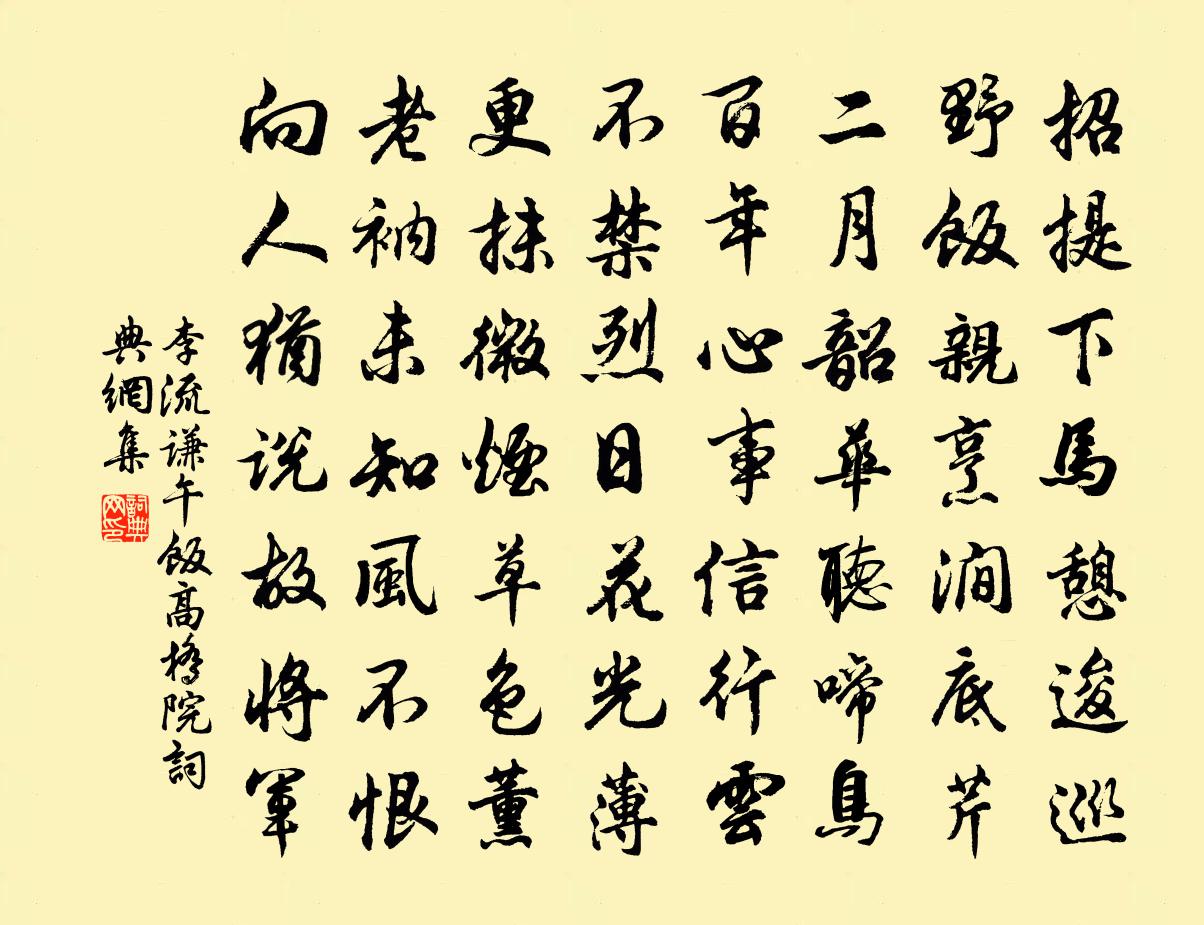 招提下馬憩逡巡
野飯親烹澗底芹
二月韶華聽啼鳥
百年心事信行雲
不禁烈日花光薄
更抹微煙草色薰
老衲未知風不恨
向人猶說故將軍
李流謙午飯高橋院詞
典網集
詞典
网印